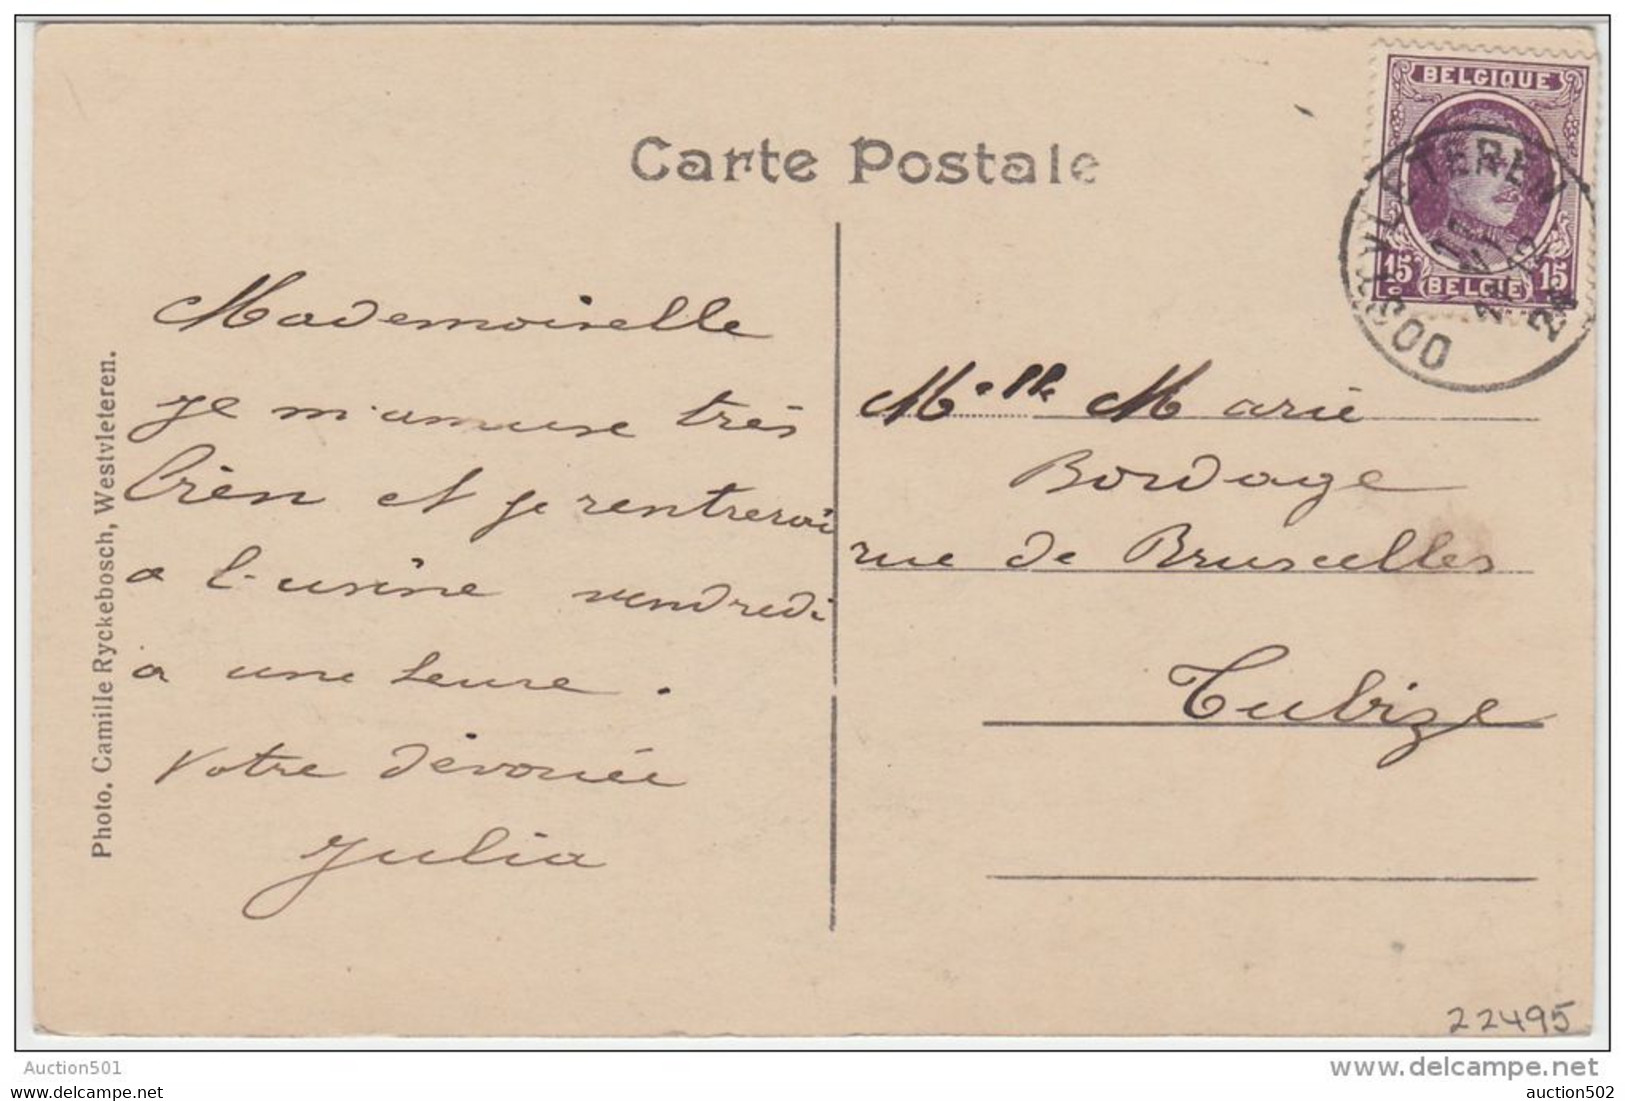 Carte Postale
BELGIQUE
15c
15
BELGIË
OOSTVLETEREN
Mademoiselle
je m'amuse très
bien et je rentrerai
a l'usine vendredi
a une heure.
Votre dévouée
Julia
Photo. Camille Ryckebosch, Westvleteren.
Melle Marie
Bordage
rue de Bruxelles
Tubize
22495
Auction501
www.delcampe.net
auction502
auction502